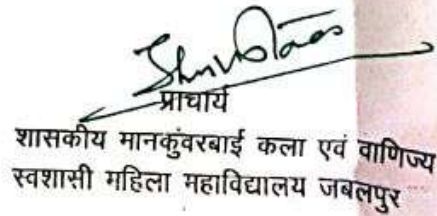 प्राचार्य
शासकीय मानकुंवरबाई कला एवं वाणिज्य
स्वशासी महिला महाविद्यालय जबलपुर